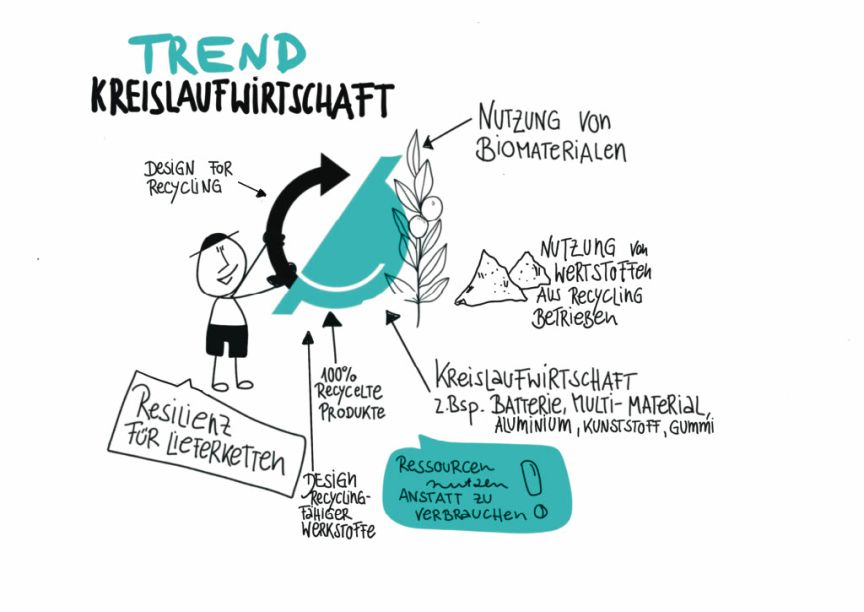 TREND
KREISLAUFWIRTSCHAFT
DESIGN FOR
RECYCLING
NUTZUNG VON
BIOMATERIALEN
NUTZUNG von
WERTSTOFFEN
AUS RECYCLING
BETRIEBEN
KREISLAUFWIRTSCHAFT
z.Bsp. BATTERIE, MULTI-MATERIAL,
ALUMINIUM, KUNSTSTOFF, GUMMI
100%
RECYCELTE
PRODUKTE
RESILIENZ
FÜR LIEFERKETTEN
DESIGN
RECYCLING-
FÄHIGER
WERKSTOFFE
RESSOURCEN
nutzen
ANSTATT ZU
VERBRAUCHEN!